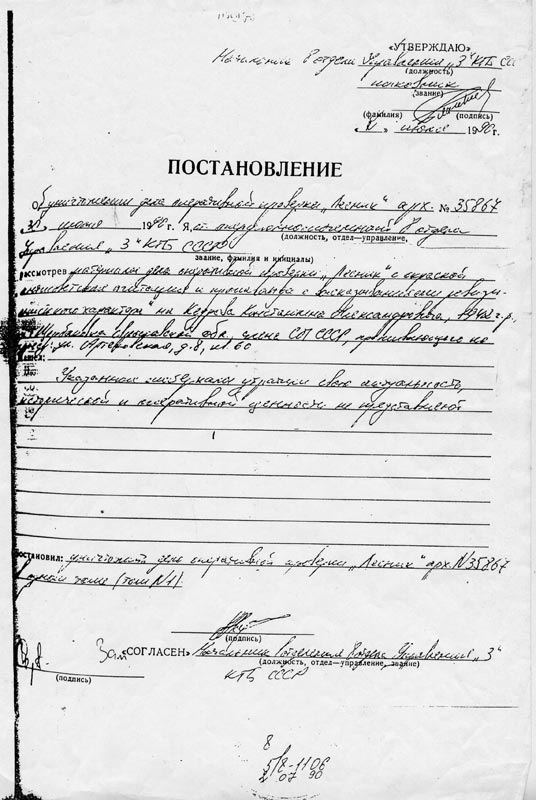 «УТВЕРЖДАЮ»
Начальник 8 отдела Управления „З" КГБ СССР
(должность)
полковник
(звание)
(фамилия) (подпись)
июля 1990 г.
ПОСТАНОВЛЕНИЕ
Об уничтожении дела оперативной проверки „Лесник" арх. № 35867
июля 1990 г. Я, ст. оперуполномоченный 8 отдела
(должность, отдел—управление,
Управления „З" КГБ СССР
звание, фамилия и инициалы)
рассмотрев материалы дела оперативной проверки „Лесник" с окраской
антисоветская агитация и пропаганда с высказываниями ревизи-
онистского характера" на Кедрова Константина Александровича, 1942 г.р.,
обл., члена СП СССР, проживающего по
ул. Артековская, д. 8, кв. 60
нашел:
Указанные материалы утратили свою актуальность,
исторической и оперативной ценности не представляют
постановил: уничтожить дело оперативной проверки „Лесник" арх. N 35867
в одном томе (том N 1)
(подпись)
Зам «СОГЛАСЕН» Начальник отделения 8 отдела Управления „З"
(должность, отдел—управление, звание)
КГБ СССР
(подпись)
8
5/8-1106
07 90